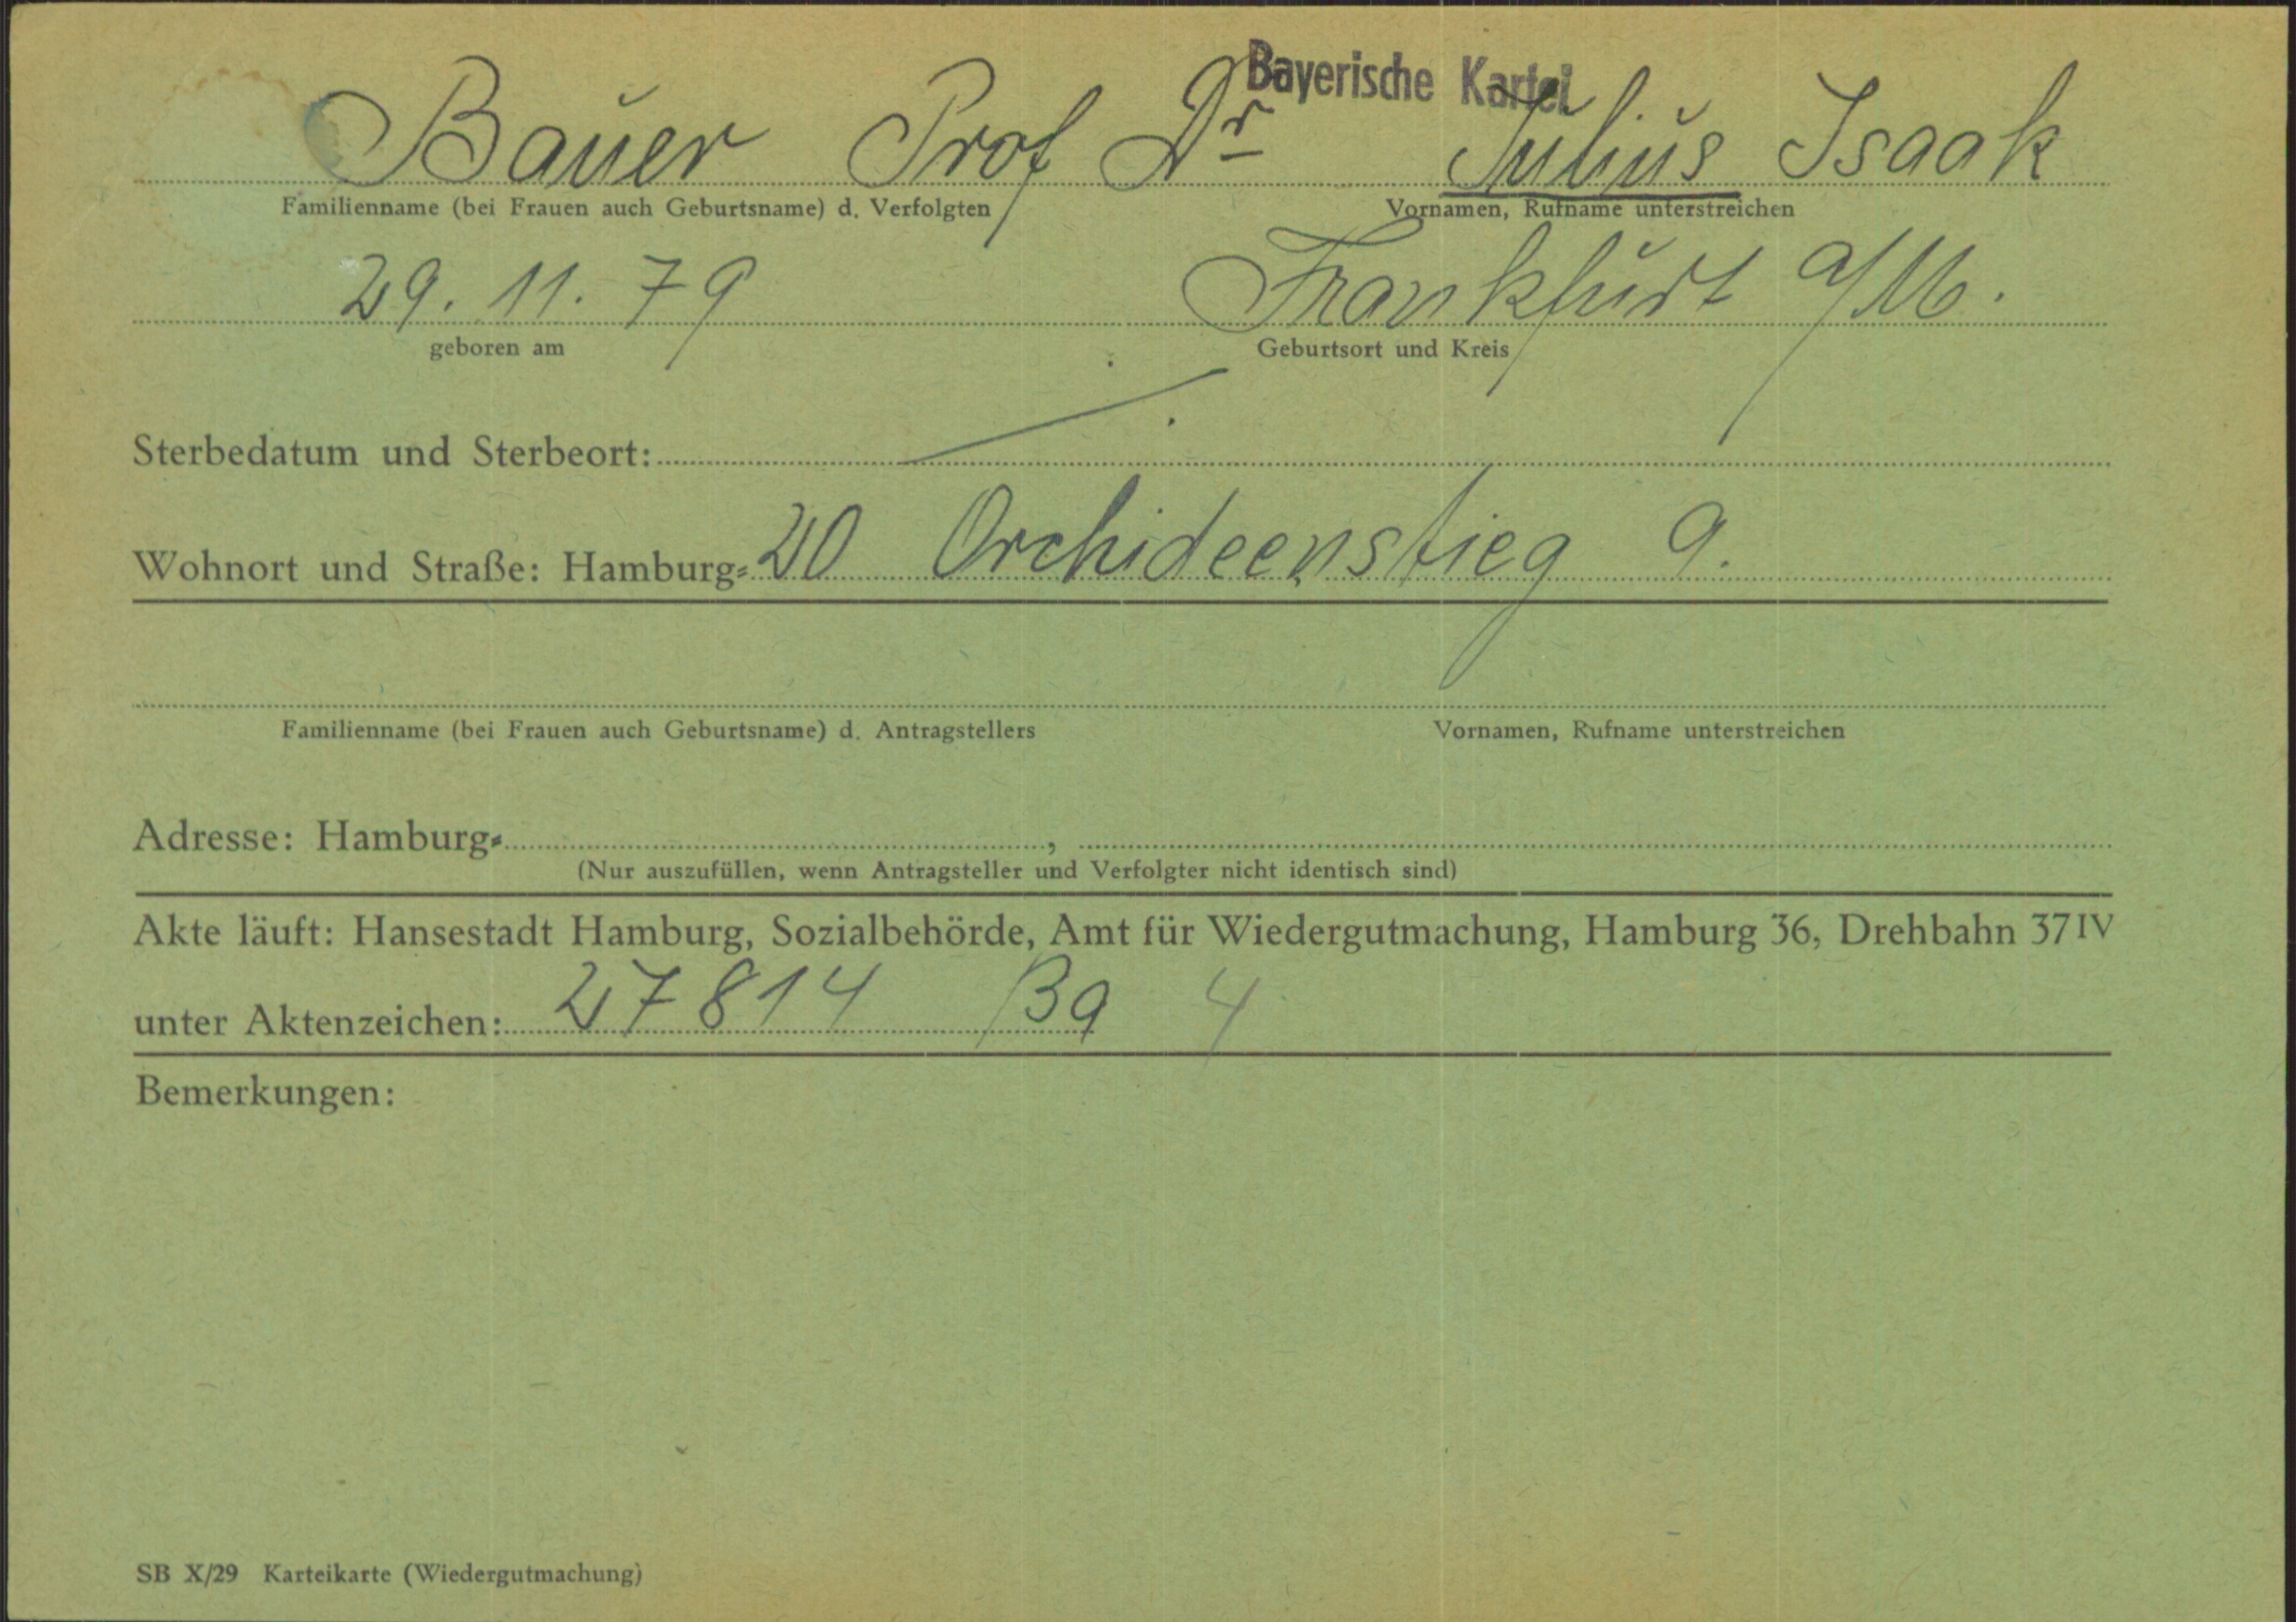 Bayerische Kartei
Bauer Prof Dr Julius Isaak
Familienname (bei Frauen auch Geburtsname) d. Verfolgten Vornamen, Rufname unterstreichen
29. 11. 79 Frankfurt a/M.
geboren am Geburtsort und Kreis
Sterbedatum und Sterbeort:
Wohnort und Straße: Hamburg=20 Orchideenstieg 9.
Familienname (bei Frauen auch Geburtsname) d. Antragstellers Vornamen, Rufname unterstreichen
Adresse: Hamburg= ,
(Nur auszufüllen, wenn Antragsteller und Verfolgter nicht identisch sind)
Akte läuft: Hansestadt Hamburg, Sozialbehörde, Amt für Wiedergutmachung, Hamburg 36, Drehbahn 37 IV
unter Aktenzeichen: 27814 Ba 4
Bemerkungen:
SB X/29 Karteikarte (Wiedergutmachung)